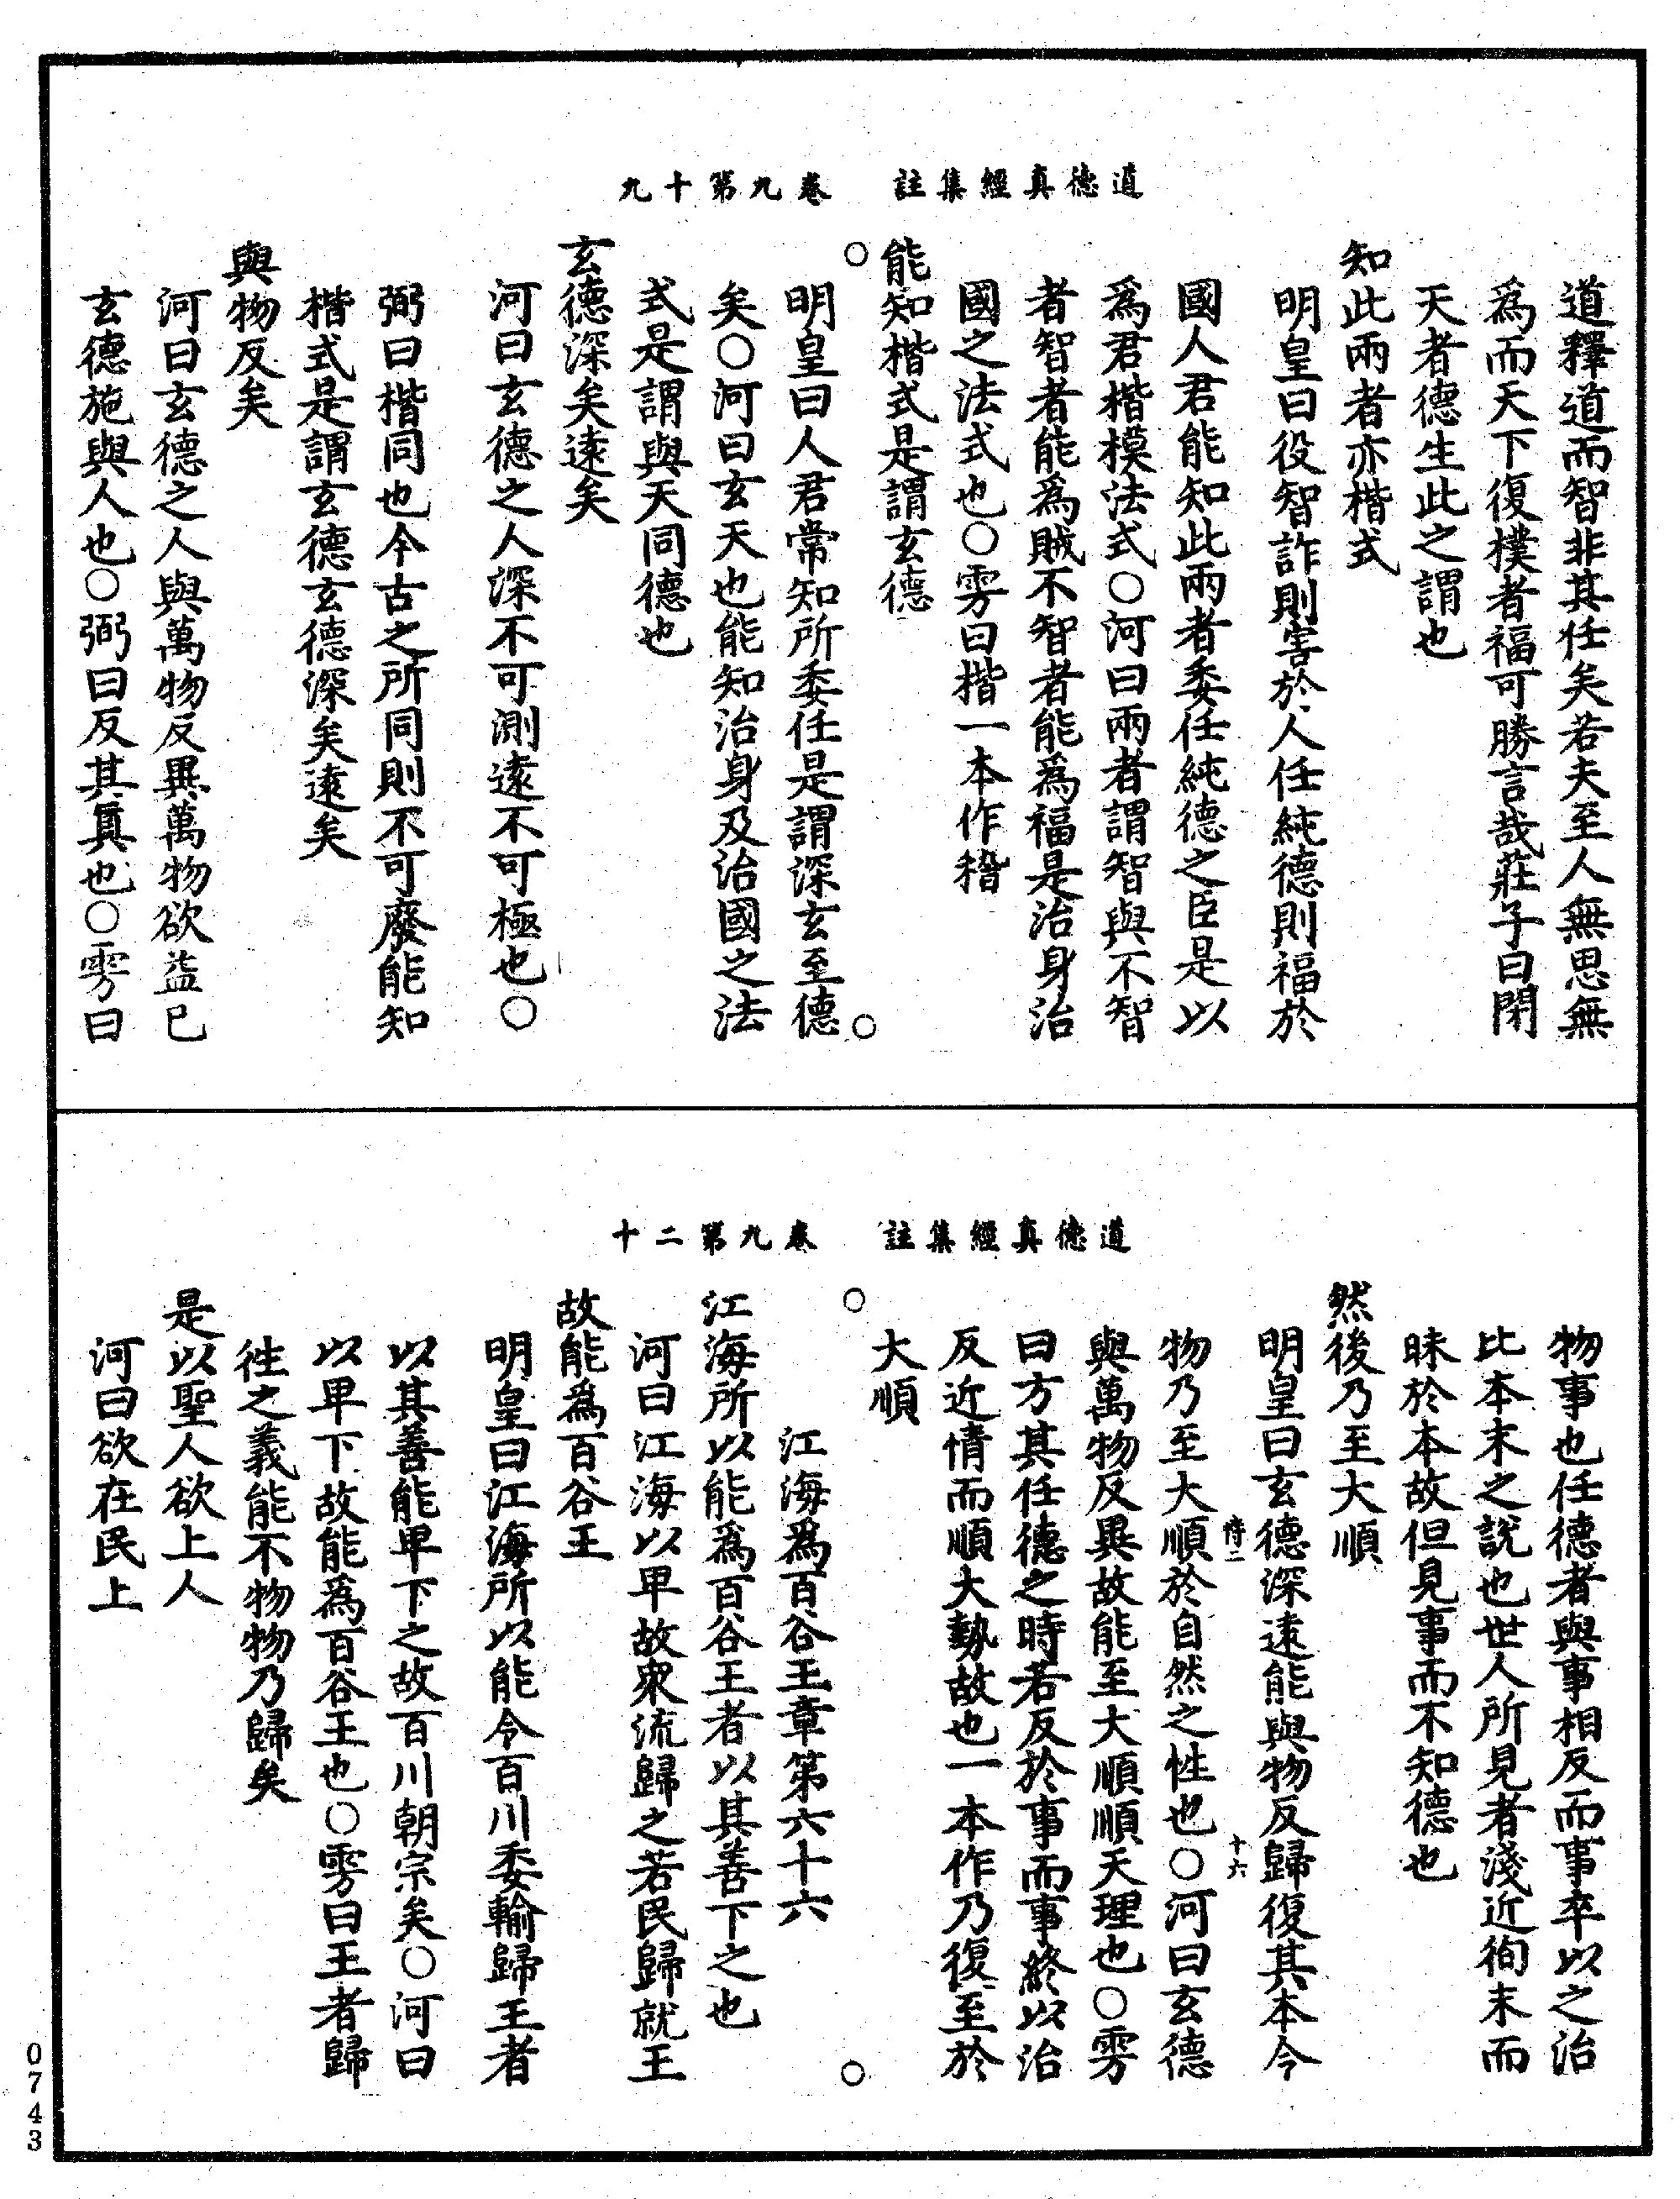 道德真經集註　卷九第十九
道釋道而智非其任矣若夫至人無思無
爲而天下復樸者福可勝言哉莊子曰閉
天者德生此之謂也
知此兩者亦楷式
明皇曰役智詐則害於人任純德則福於
國人君能知此兩者委任純德之臣是以
爲君楷模法式○河曰兩者謂智與不智
者智者能爲賊不智者能爲福是治身治
國之法式也○雱曰楷一本作稽
能知楷式是謂玄德
明皇曰人君常知所委任是謂深玄至德
矣○河曰玄天也能知治身及治國之法
式是謂與天同德也
玄德深矣遠矣
河曰玄德之人深不可測遠不可極也○
弼曰楷同也今古之所同則不可廢能知
楷式是謂玄德玄德深矣遠矣
與物反矣
河曰玄德之人與萬物反異萬物欲益已
玄德施與人也○弼曰反其真也○雱曰
道德真經集註　卷九第二十
物事也任德者與事相反而事卒以之治
比本末之說也世人所見者淺近徇末而
昧於本故但見事而不知德也
然後乃至大順
明皇曰玄德深遠能與物反歸復其本令
物乃至大順於自然之性也○河曰玄德
與萬物反異故能至大順順天理也○雱
曰方其任德之時若反於事而事終以治
反近情而順大勢故也一本作乃復至於
大順
江海爲百谷王章第六十六
江海所以能爲百谷王者以其善下之也
河曰江海以卑故衆流歸之若民歸就王
故能爲百谷王
明皇曰江海所以能令百川委輸歸王者
以其善能卑下之故百川朝宗矣○河曰
以卑下故能爲百谷王也○雱曰王者歸
往之義能不物物乃歸矣
是以聖人欲上人
河曰欲在民上
十六
0743